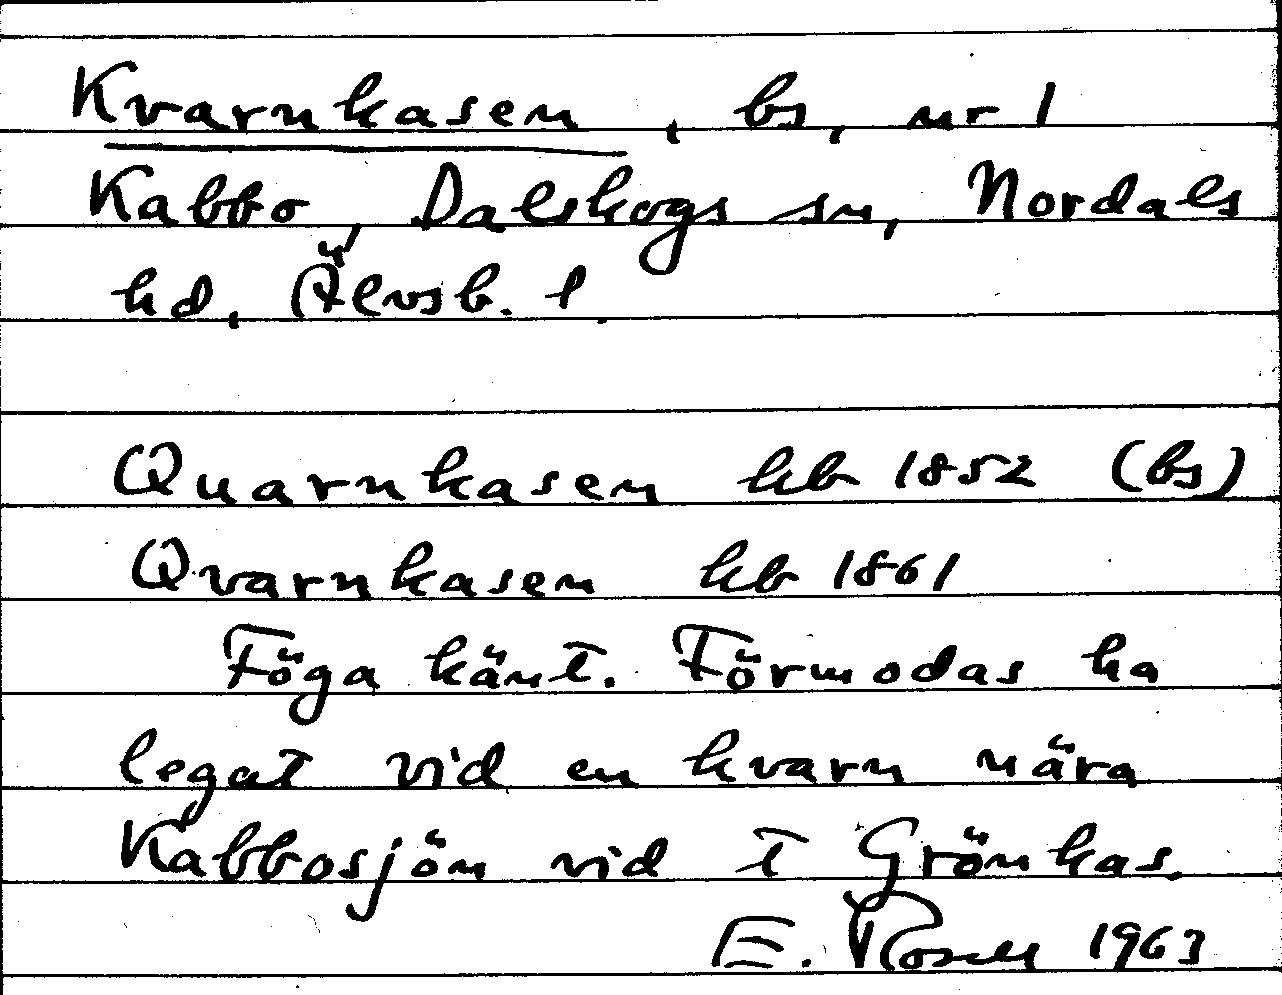 Kvarnkasen, bs, nr 1
Kabbo, Dalskogs sn, Nordals
hd, Älvsb. l.
Quarnkasen hb 1852 (bs)
Qvarnkasen hb 1861
Föga känt. Förmodas ha
legat vid en kvarn nära
Kabbosjön vid t Grönkas.
E. Rosell 1963